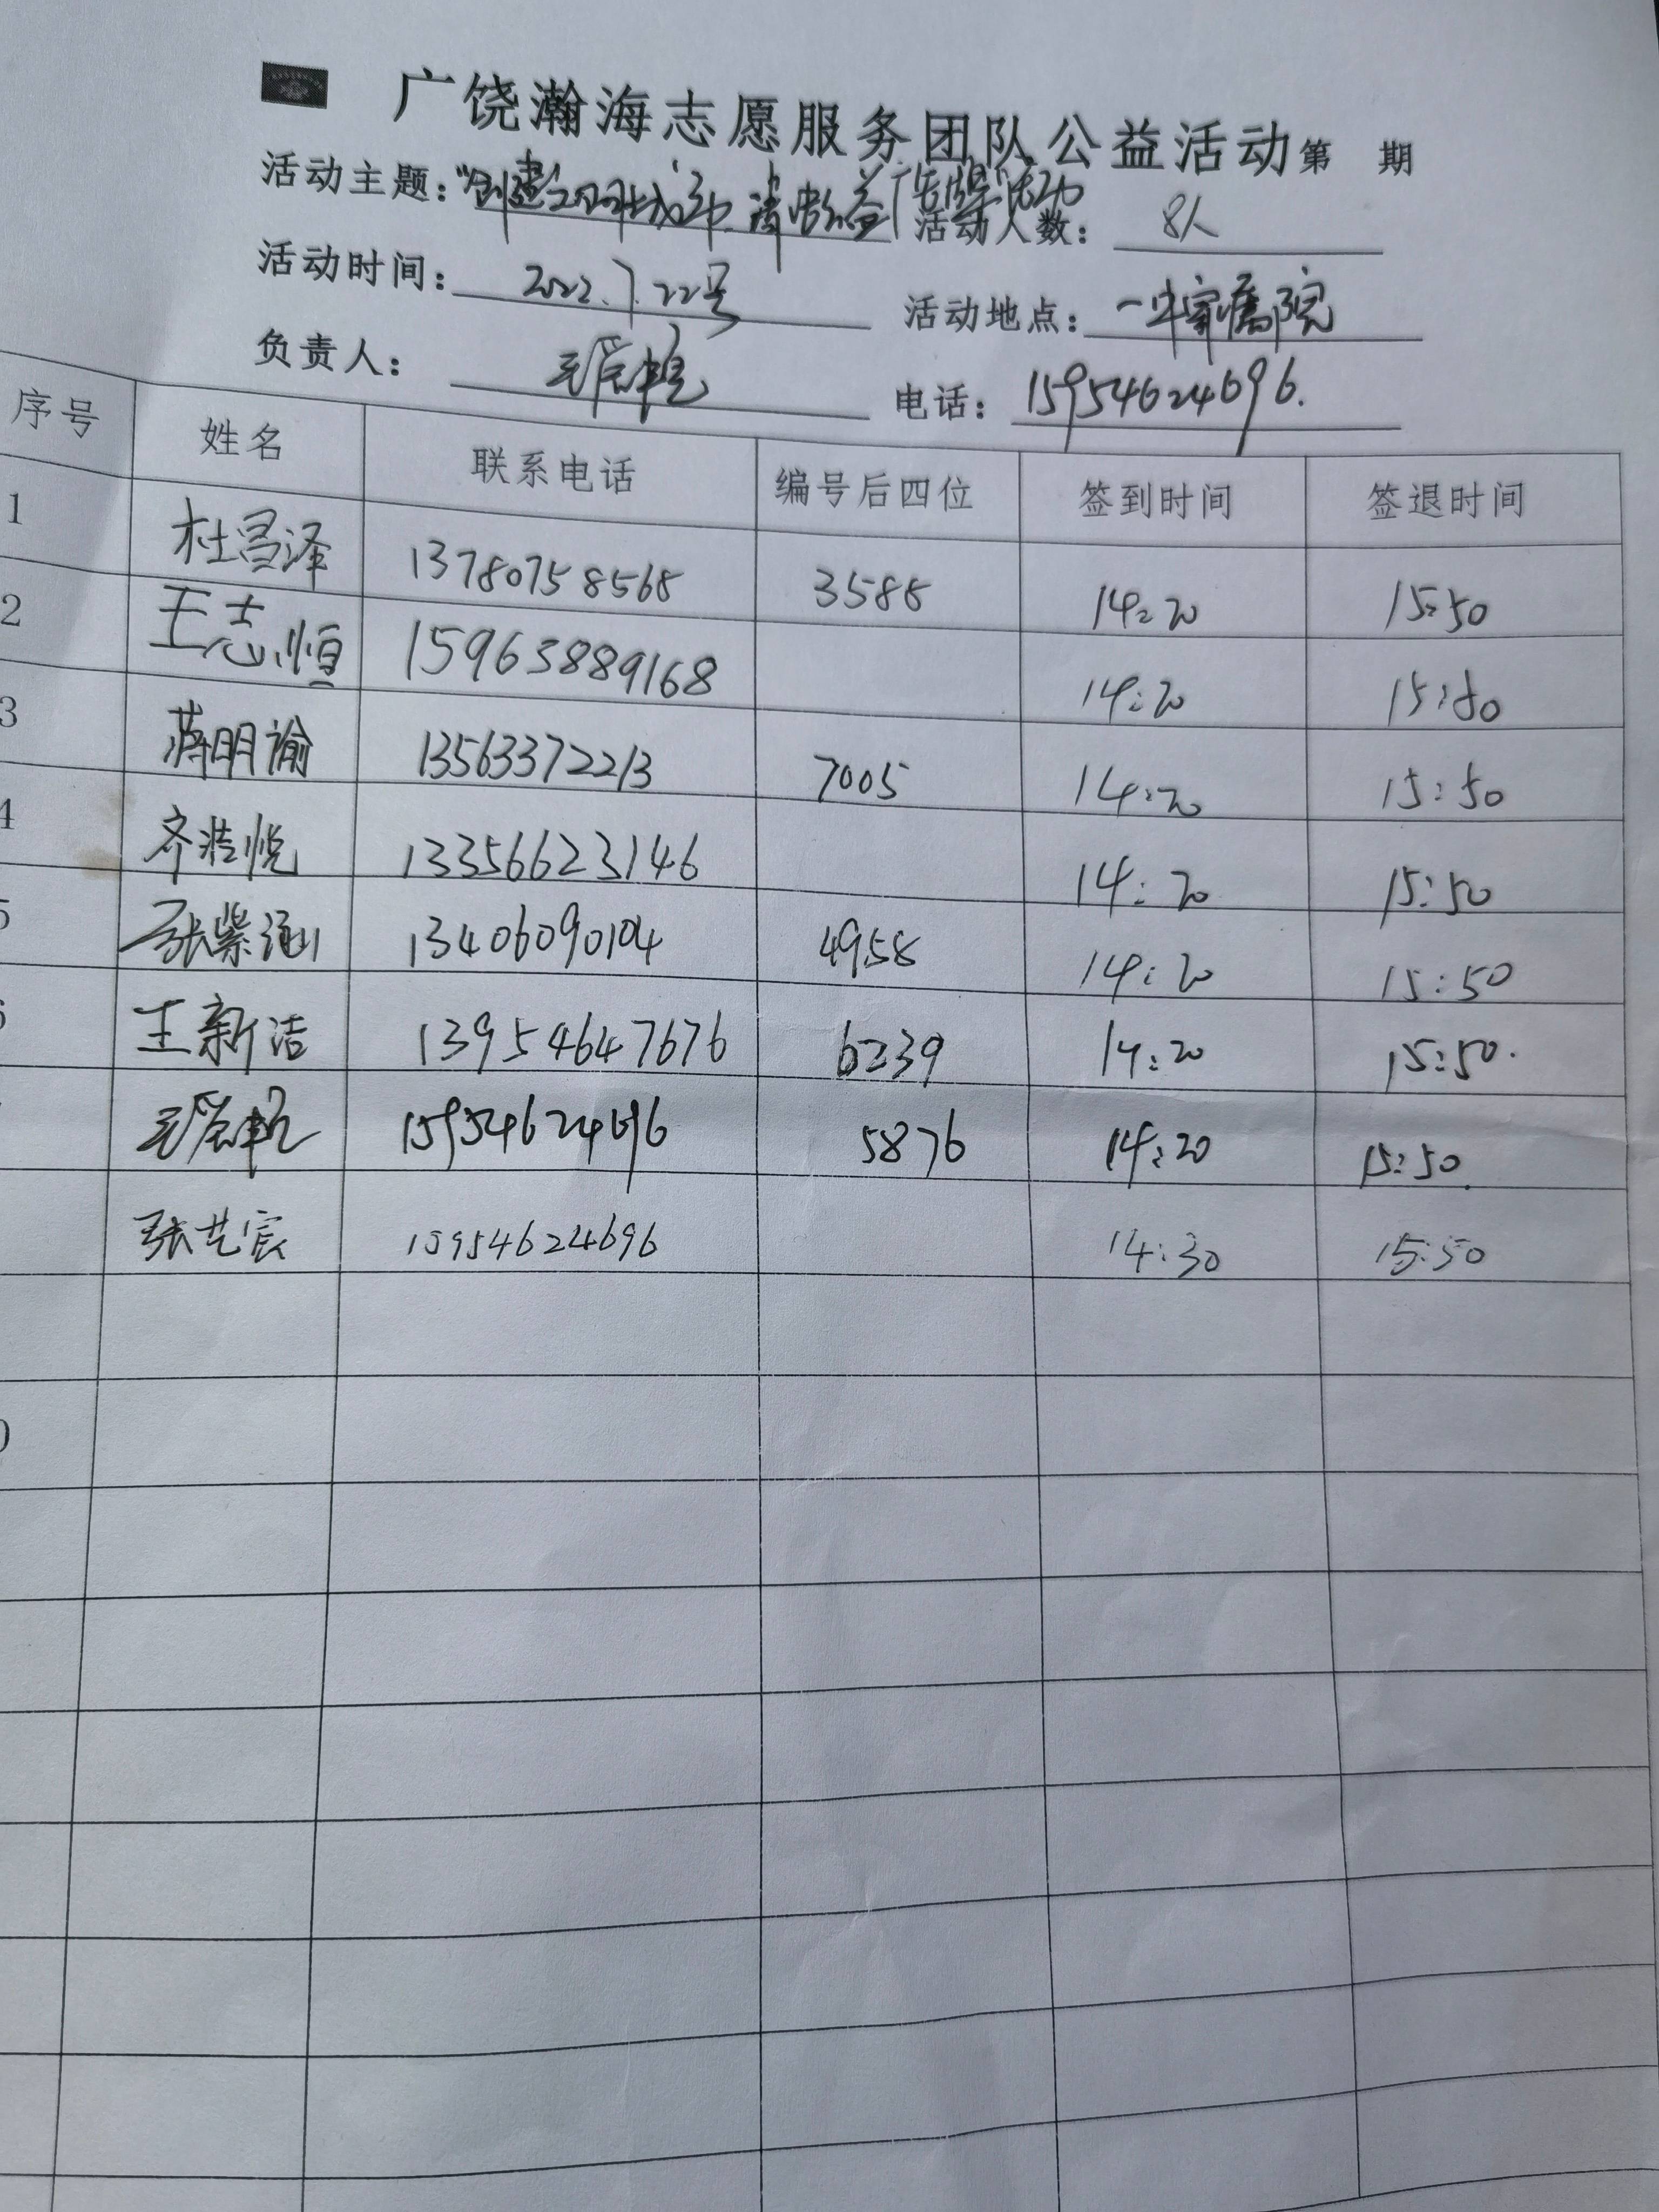 广饶瀚海志愿服务团队公益活动第 期
活动主题：“创建 清 公益广告牌”活动 活动人数： 8人
活动时间： 2022.7.22号 活动地点： 一中家属院
负责人： 电话： 15954624696.
序号 姓名 联系电话 编号后四位 签到时间 签退时间
1 杜昌泽 13780758568 3588 14:20 15:50
2 王志恒 15963889168 14:20 15:50
3 蒋明谕 13563372213 7005 14:20 15:50
4 齐浩悦 13356623146 14:20 15:50
5 张紫涵 13406090104 4958 14:20 15:50
6 王新洁 13954647676 6239 14:20 15:50.
15954624696 5876 14:20 15:50.
张艺宸 15954624696 14:30 15:50